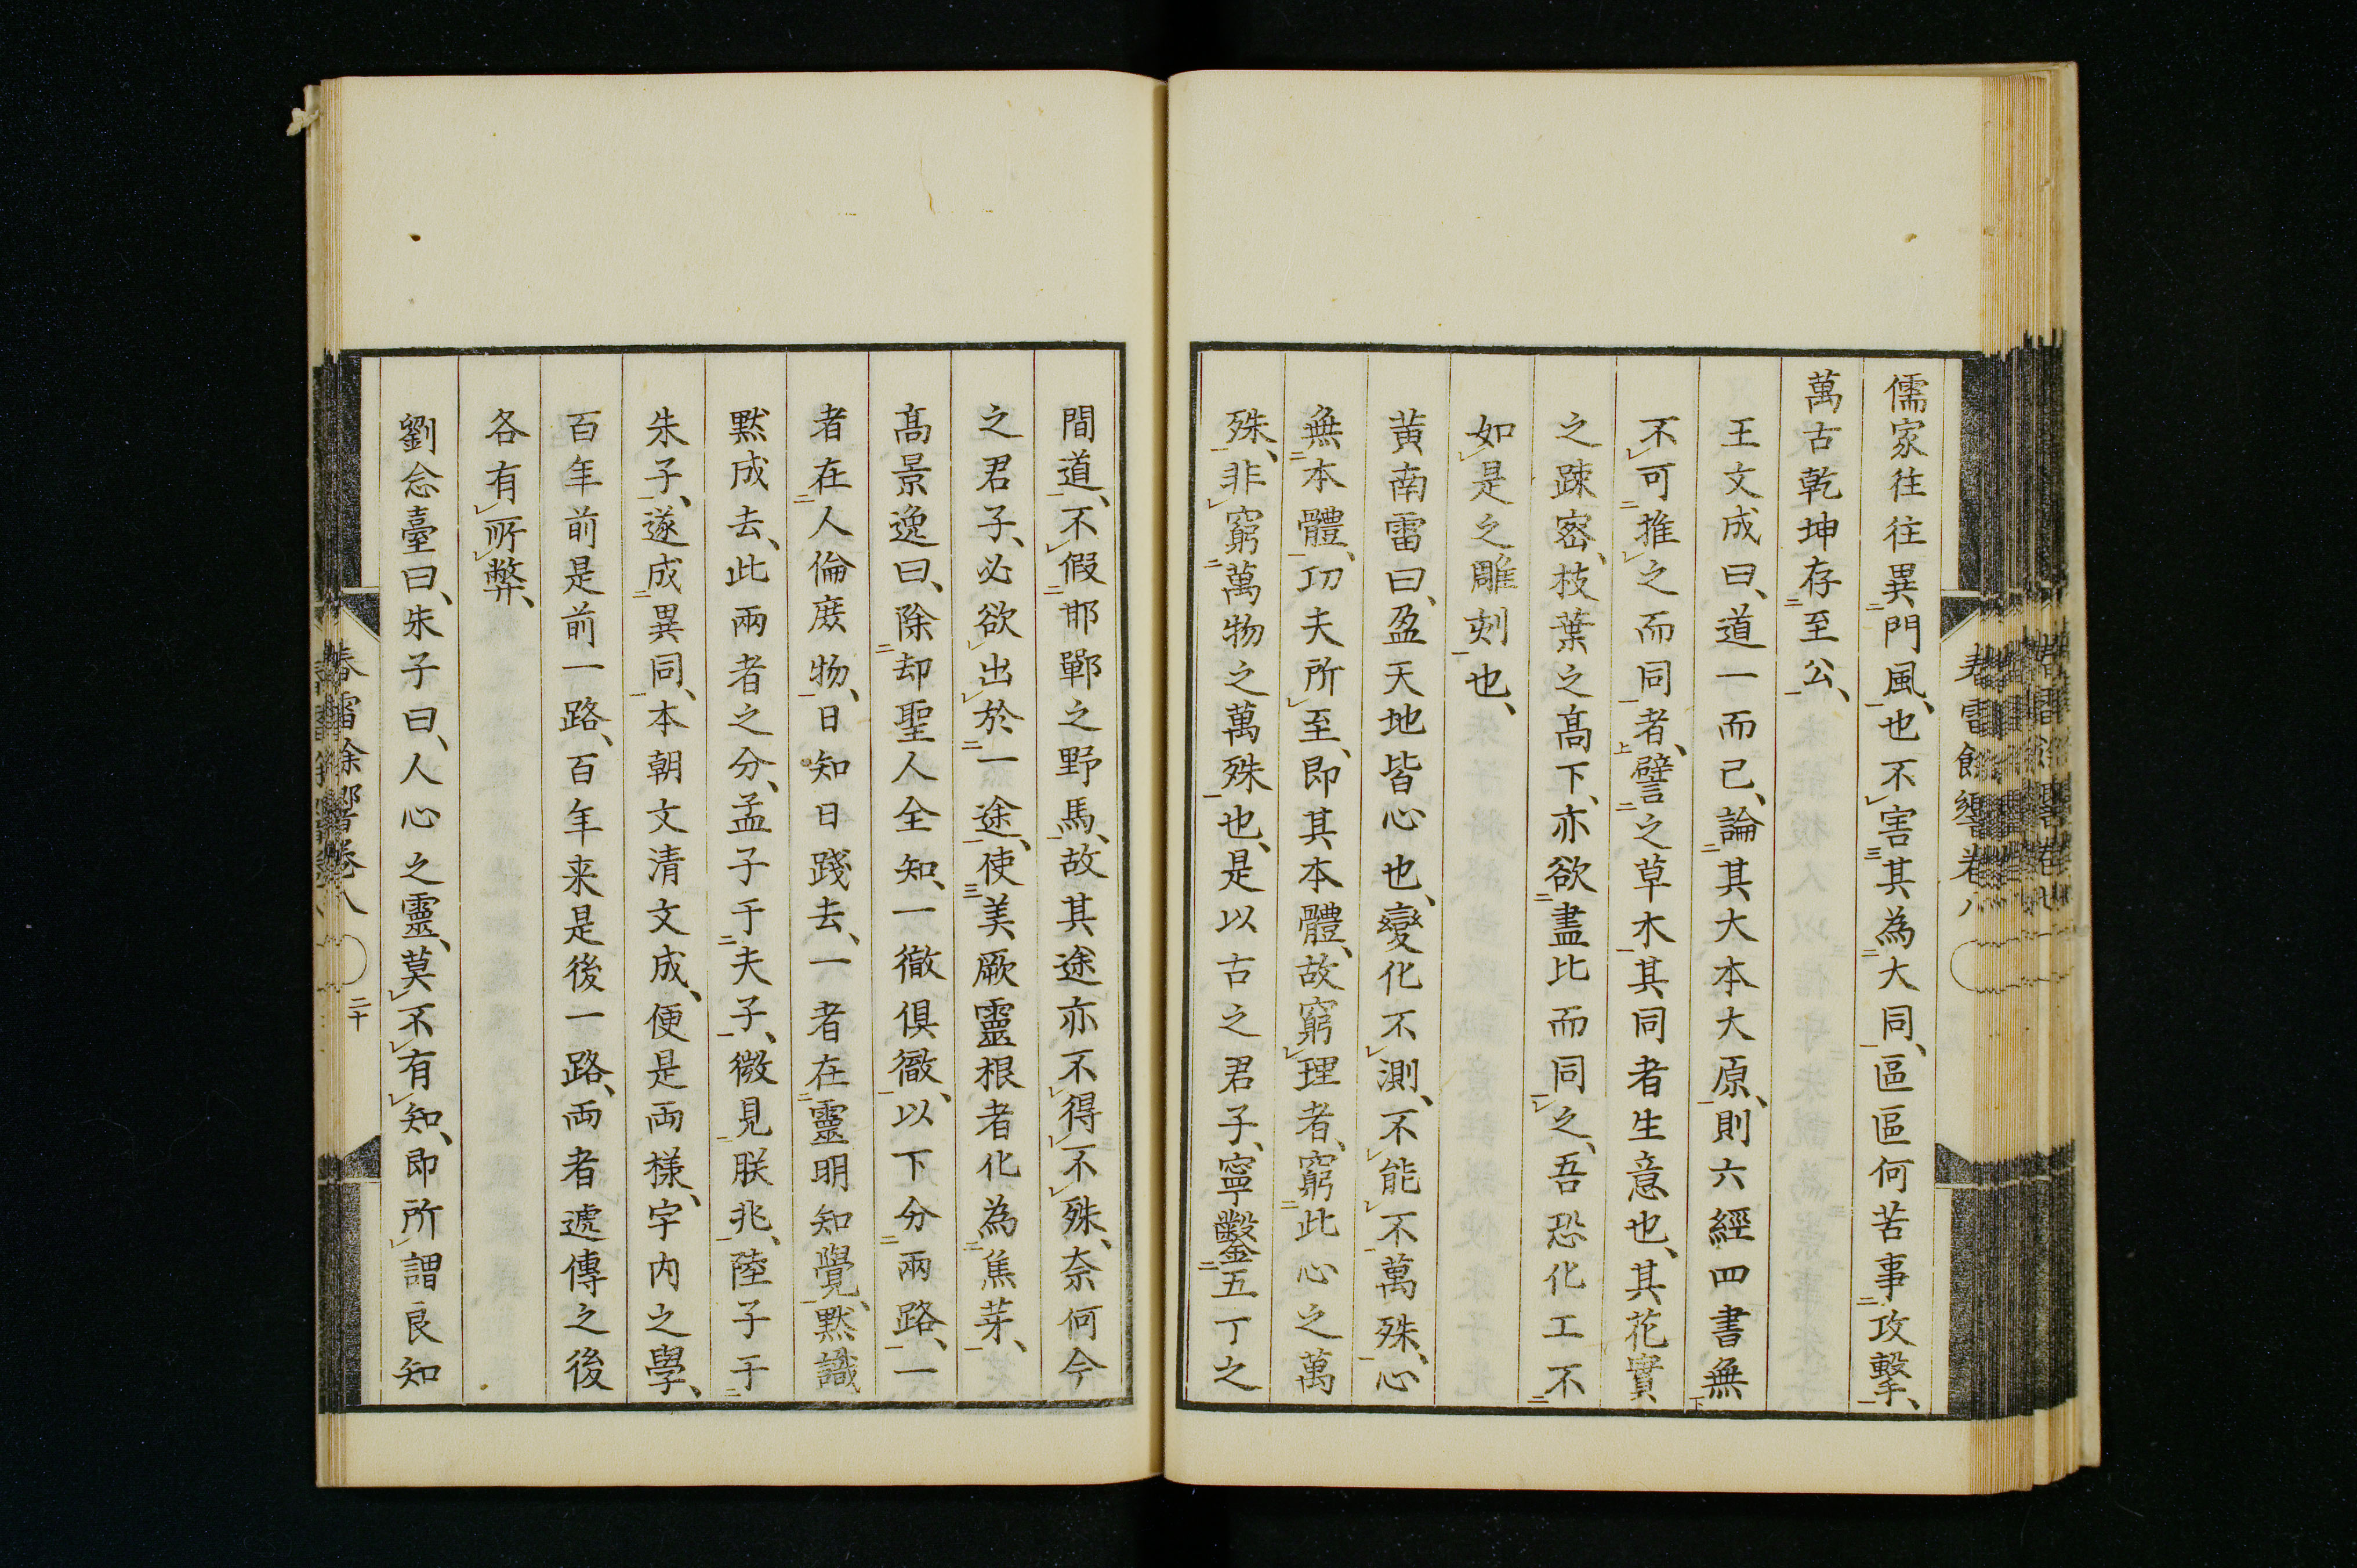 儒家往往異門風、也不害其為大同、區區何苦事攻擊、
萬古乾坤存至公、
王文成曰、道一而已、論其大本大原、則六經四書無
不可推之而同者、譬之草木其同者生意也、其花實
之踈密、枝葉之高下、亦欲盡比而同之、吾恐化工不
如是之雕刻也、
黃南雷曰、盈天地皆心也、變化不測、不能不萬殊、心
無本體、功夫所至、即其本體、故窮理者、窮此心之萬
殊、非窮萬物之萬殊也、是以古之君子、寧鑿五丁之
間道、不假邯鄲之野馬、故其途亦不得不殊、奈何今
之君子、必欲出於一途、使美厥靈根者化為焦芽、
高景逸曰、除却聖人全知、一徹俱徹、以下分兩路、一
者在人倫庶物、日知日踐去、一者在靈明知覺、默識
默成去、此兩者之分、孟子于夫子、微見朕兆、陸子于
朱子、遂成異同、本朝文清文成、便是両樣、宇內之學、
百年前是前一路、百年来是後一路、両者遞傳之後
各有所弊、
劉念臺曰、朱子曰、人心之靈、莫不有知、即所謂良知
春雷餘響卷八
二十